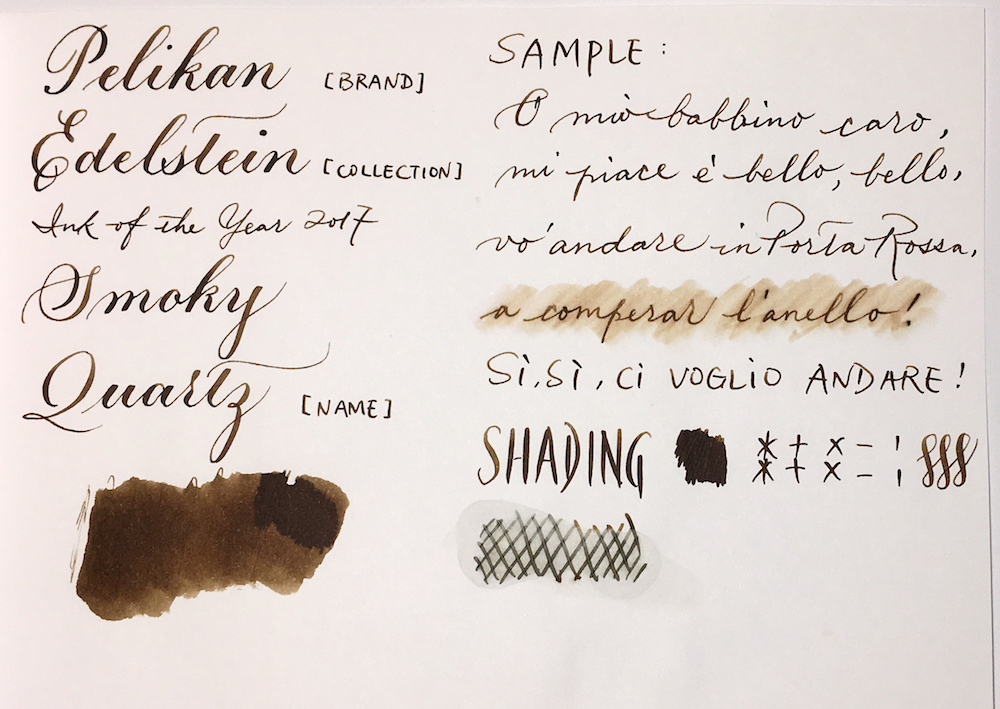 Pelikan [BRAND]
Edelstein [COLLECTION]
Ink of the Year 2017
Smoky
Quartz [NAME]
SAMPLE:
O mio babbino caro,
mi piace è bello, bello,
vo' andare in Porta Rossa,
a comperar l'anello!
Sì, sì, ci VOGLIO ANDARE!
SHADING